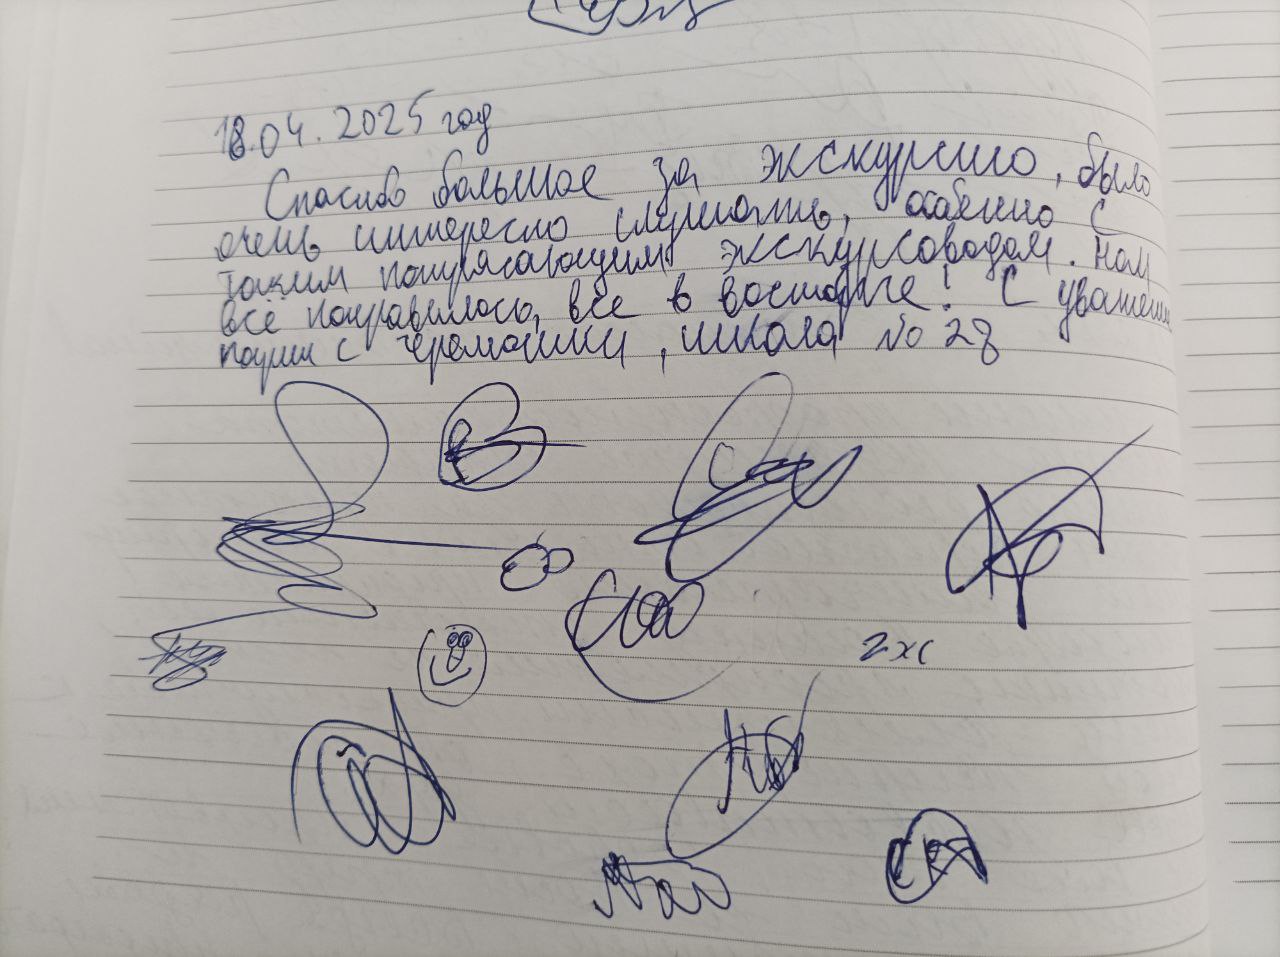 18.04.2025 год
Спасибо большое за экскурсию, было
очень интересно слушать, особенно с
таким потрясающим экскурсоводом. Нам
всё понравилось, все в восторге! С уважением
с черёмошки, школа № 28
2хс